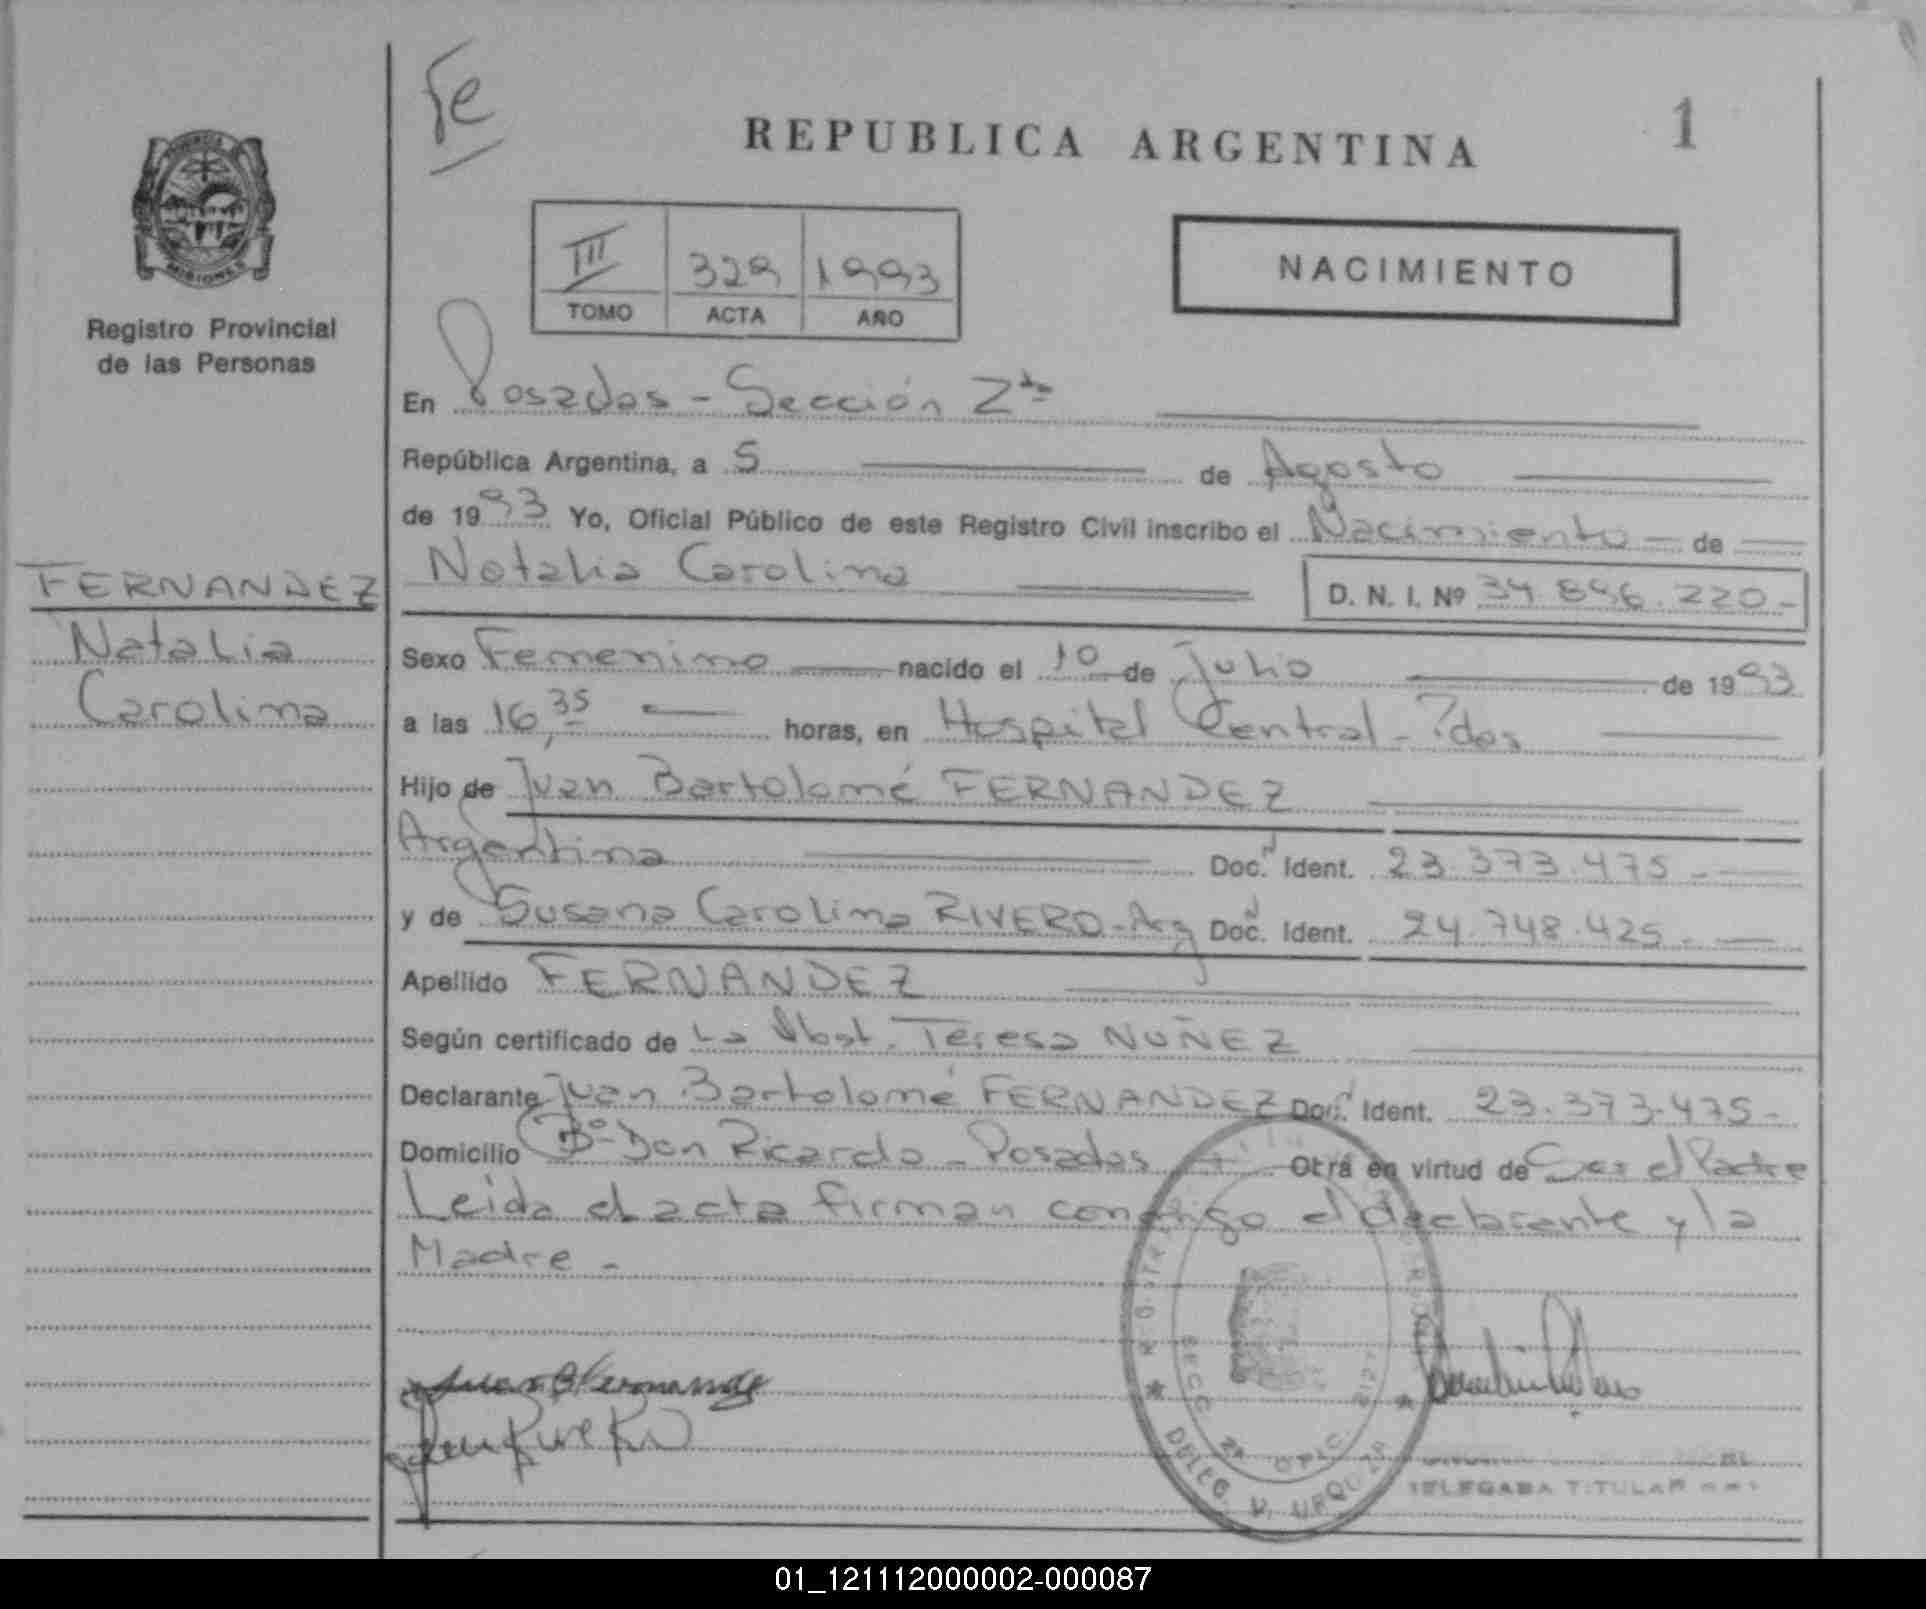 Fe
REPUBLICA ARGENTINA
1
III 329 1993
TOMO ACTA AÑO
NACIMIENTO
MISIONES
Registro Provincial
de las Personas
En Posadas - Sección 2da
República Argentina, a 5 de Agosto
de 1993 Yo, Oficial Público de este Registro Civil inscribo el Nacimiento - de
Natalia Carolina
D. N. I. Nº 34.896.220-
FERNANDEZ
Natalia
Carolina
Sexo Femenino nacido el 10 de Julio de 1993
a las 16,35 horas, en Hospital Central - Pdas
Hijo de Juan Bartolomé FERNANDEZ
Argentina Doc. Ident. 23.373.475-
y de Susana Carolina RIVERO - Arg Doc. Ident. 24.748.425-
Apellido FERNANDEZ
Según certificado de La Obst. Teresa NUÑEZ
Declarante Juan Bartolomé FERNANDEZ Doc. Ident. 23.373.475-
Domicilio Bº Don Ricardo - Posadas Otra en virtud de Ser el Padre
Leida el acta firman conmigo el declarante y la
Madre -
Juan B Fernandez
SECC. 2A OFIC.
DELEGADA TITULAR
01_121112000002-000087